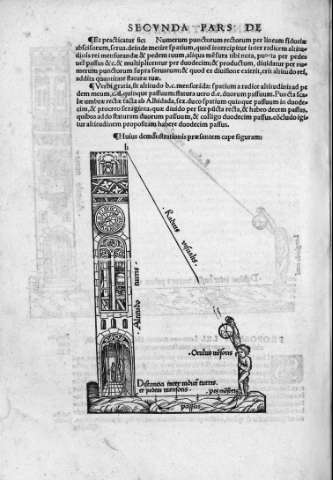 SECVNDA PARS DE
¶Et practicatur sic: Numerum punctorum rectorum per lineam fiduciæ
abscissorum, serua. deinde metire spatium, quod intercipitur inter radicem altitu-
dinis rei mensurandæ & pedem tuum, aliqua mensura tibi nota, puta per pedes
vel passus &c. & multiplicentur per duodecim: & productum, diuidatur per nu-
merum punctorum supra seruatum: & quod ex diuisione exierit, erit altitudo rei,
addita quantitate staturæ tuæ.
¶Verbi gratia, sit altitudo b.c. mensuranda: spatium a radice altitudinis ad pe
dem meum, quinque passuum: statura vero d.e. duorum passuum. Puncta sca-
læ umbræ rectæ facta ab Alhidada, sex. duco spatium quinque passuum in duode-
cim, & procreo sexaginta, quæ diuido per sex puncta recta, & habeo decem passus,
quibus addo staturam duorum passuum, & colligo duodecim passus. cõcludo igi-
tur altitudinem propositam habere duodecim passus.
¶Huius demõstrationis præsentem cape figuram:
b
Radius visualis
Altitudo turris
Oculus mẽsoris
Distantia inter radicem turris
et pedem mensoris
pes mẽsoris
passus